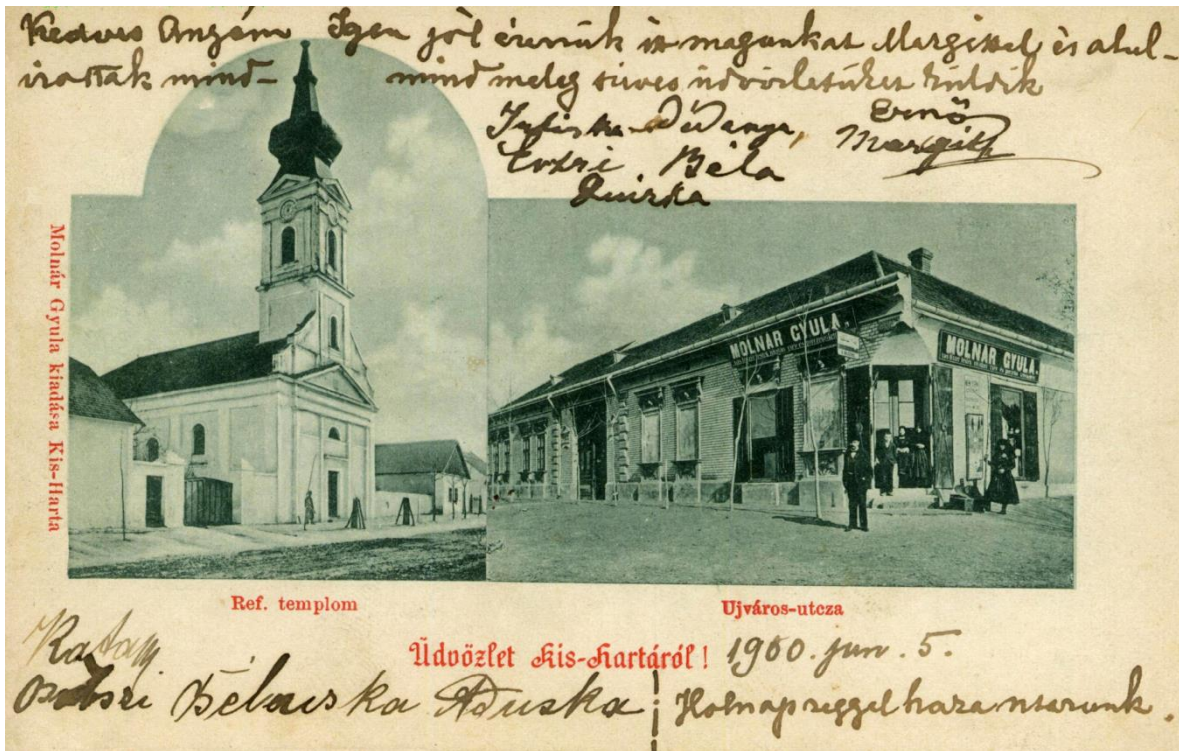 Kedves Angám Igen jól érezzük itt magunkat Margittal és alul-
írottak mind- mind meleg szives üdvözletüket küldik
Juliska Déd anya, Ernő
Margit
Béla
Molnár Gyula kiadása Kis-Harta
MOLNÁR GYULA.
MOLNÁR GYULA.
Ref. templom
Ujváros-utcza
Üdvözlet Kis-Hartáról! 1900. jun. 5.
Kata
Bélauska Aduska Holnap reggel haza utazunk.